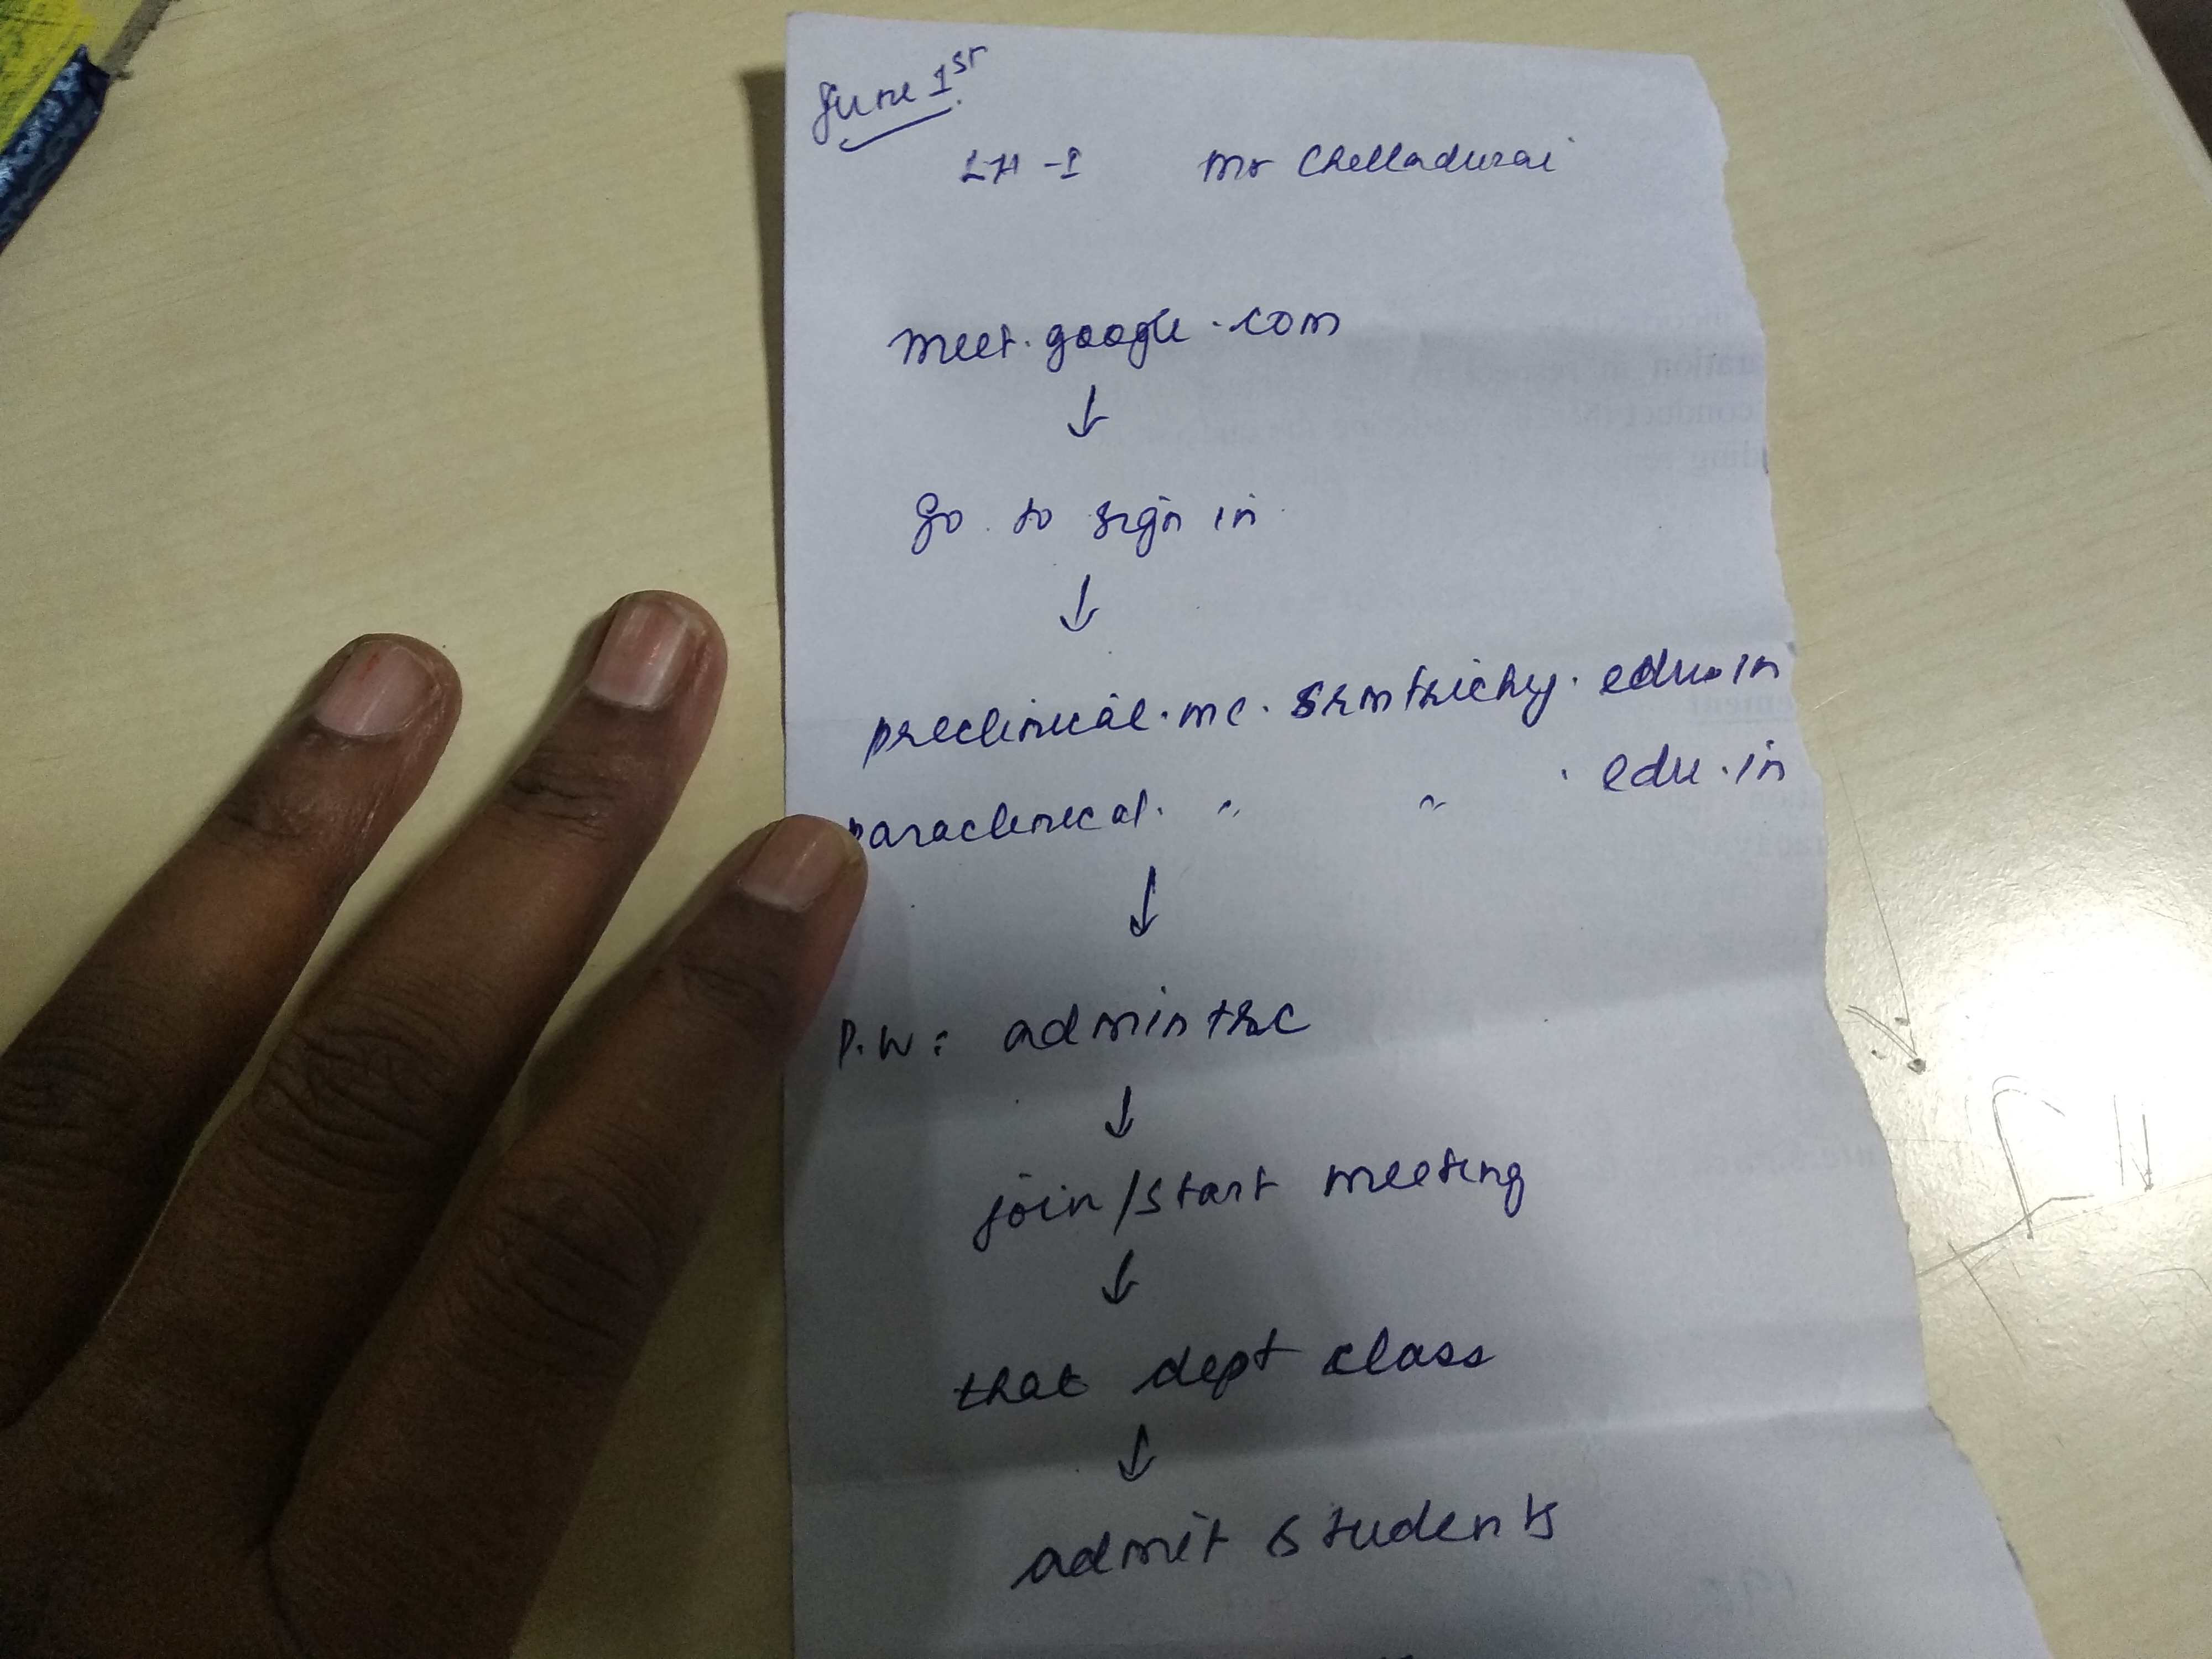 June 1st
LH-I Mr Chelladurai
meet.google.com
↓
go to sign in
↓
preclinical.mc.srmtrichy.edu.in
paraclinical. " " .edu.in
↓
P.W: admintrc
↓
join/start meeting
↓
that dept class
↓
admit students